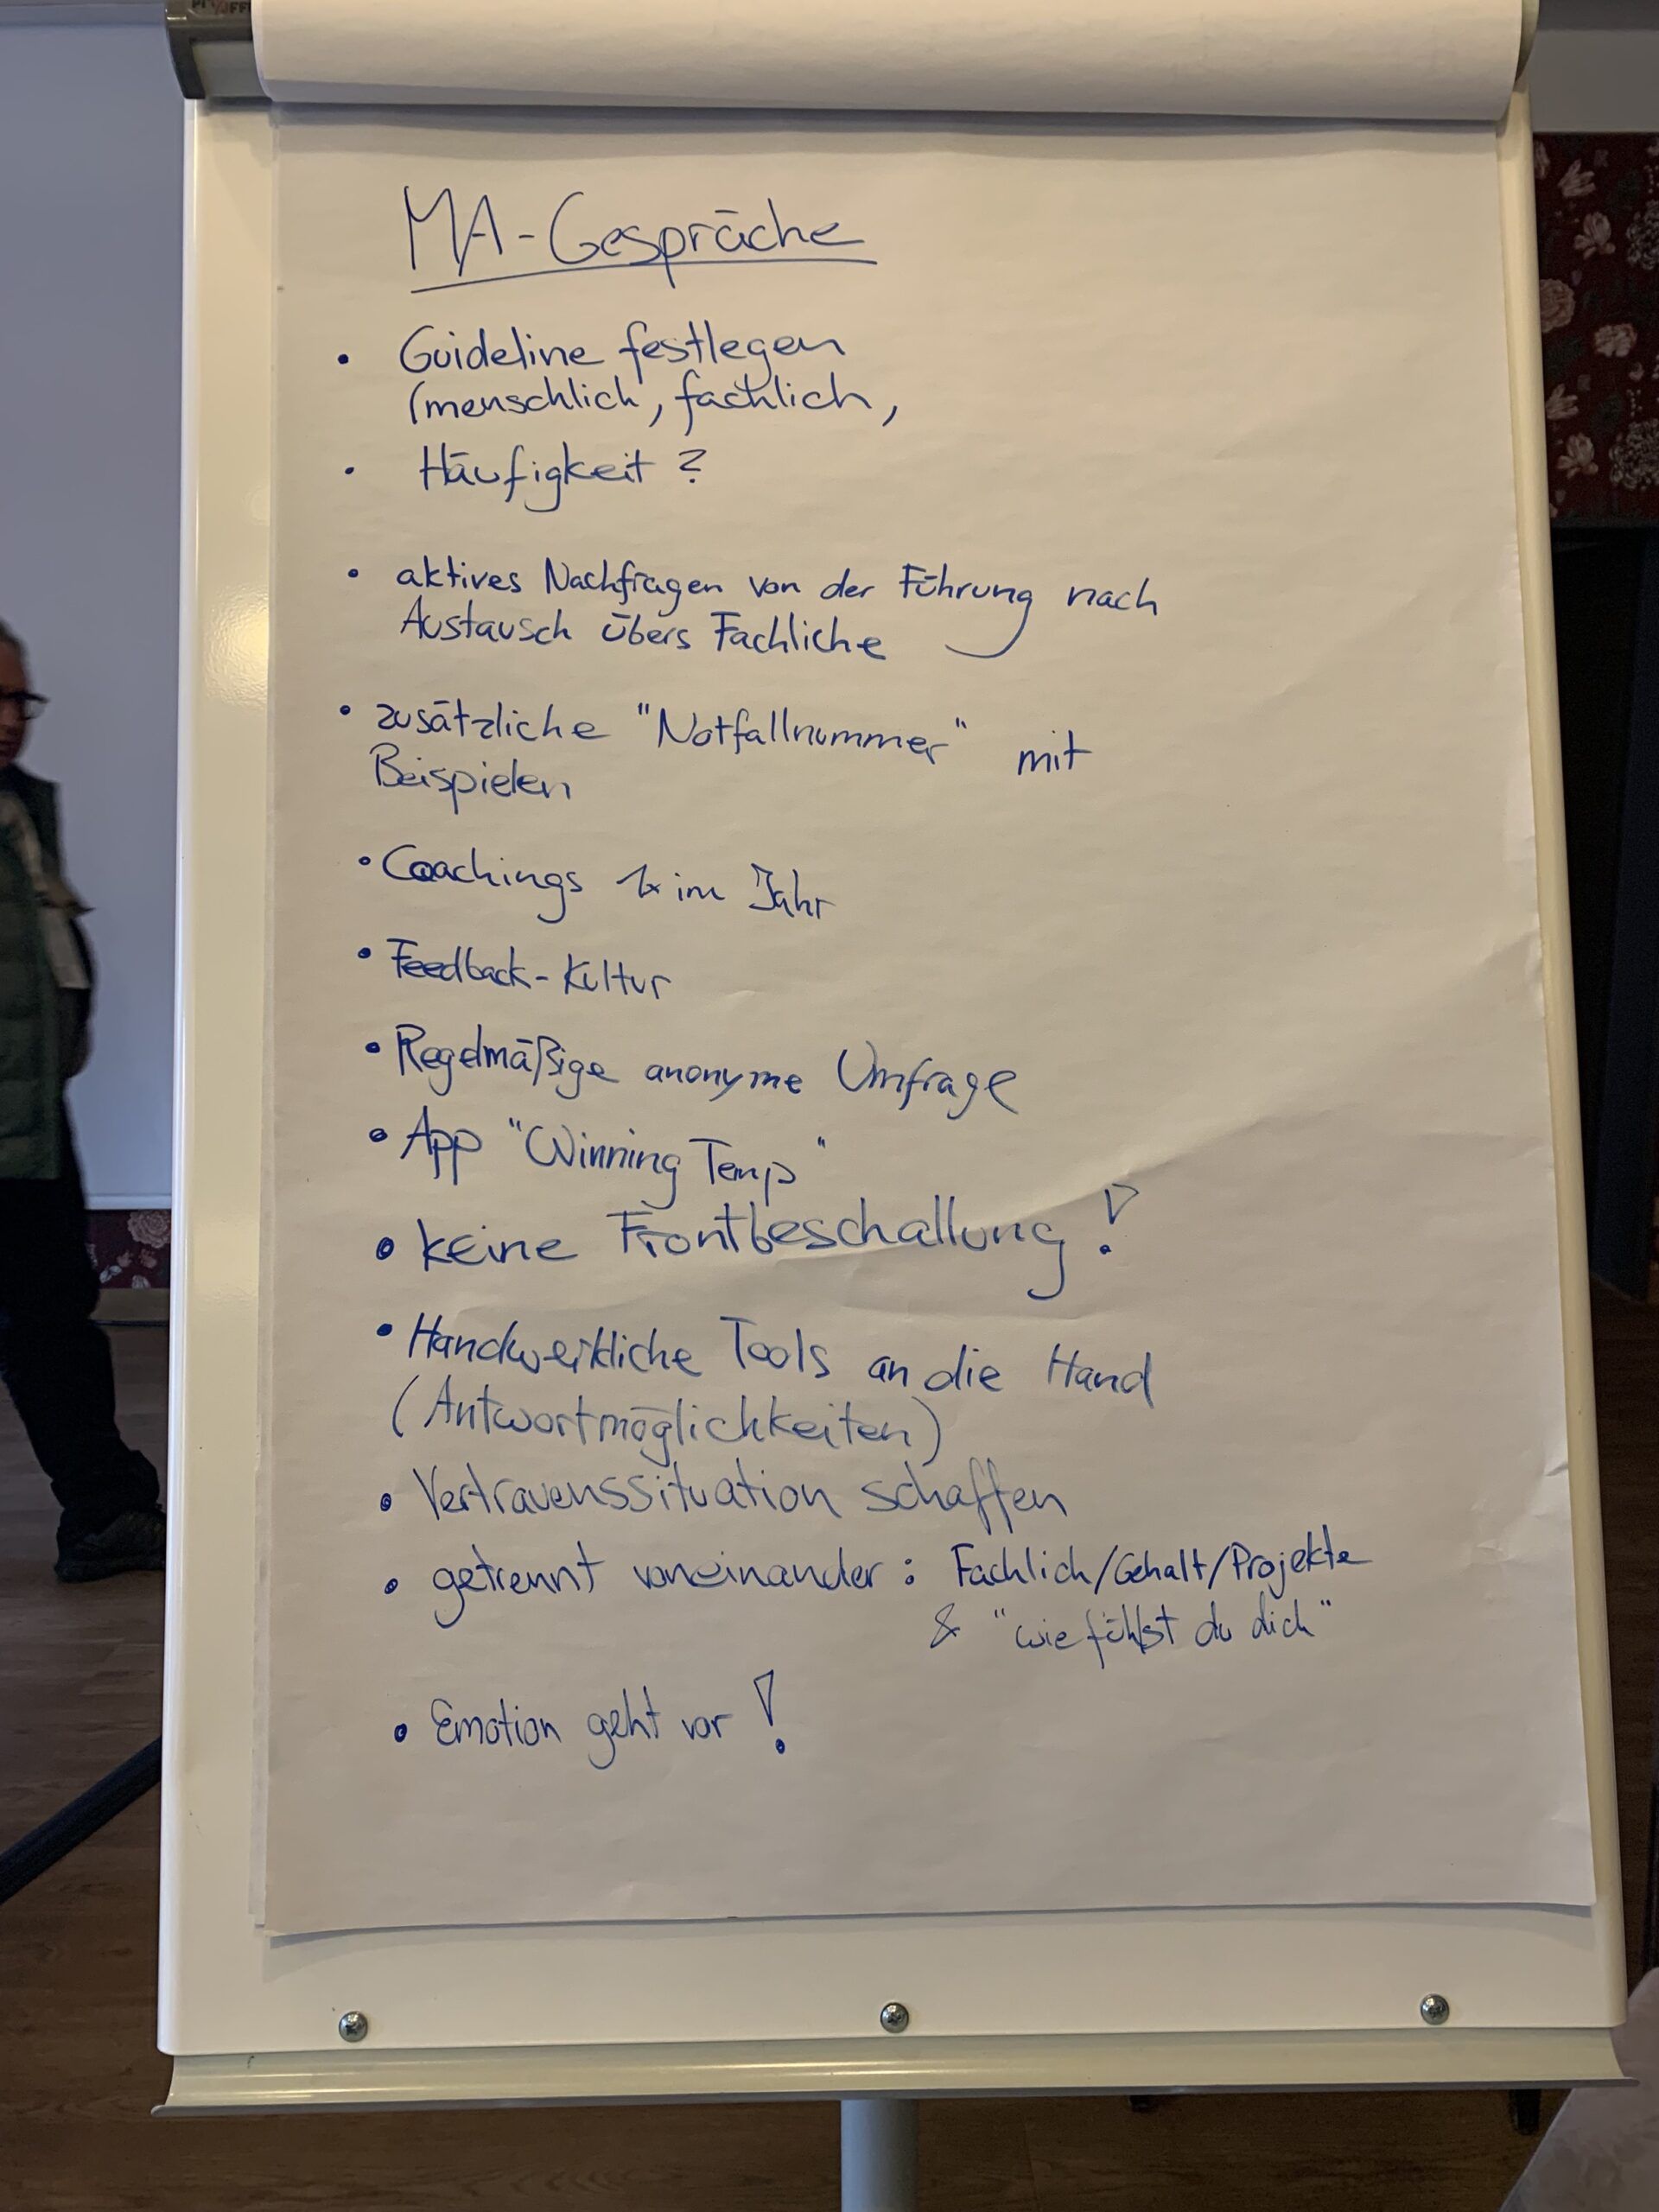 MA-Gespräche
• Guideline festlegen
(menschlich, fachlich,
• Häufigkeit ?
• aktives Nachfragen von der Führung nach
Austausch übers Fachliche
• zusätzliche "Notfallnummer" mit
Beispielen
• Coachings 1x im Jahr
• Feedback-Kultur
• Regelmäßige anonyme Umfrage
• App "Winning Temp"
• keine Frontbeschallung !
• Handwerkliche Tools an die Hand
(Antwortmöglichkeiten)
• Vertrauenssituation schaffen
• getrennt voneinander : Fachlich/Gehalt/Projekte
& "wie fühlst du dich"
• Emotion geht vor !